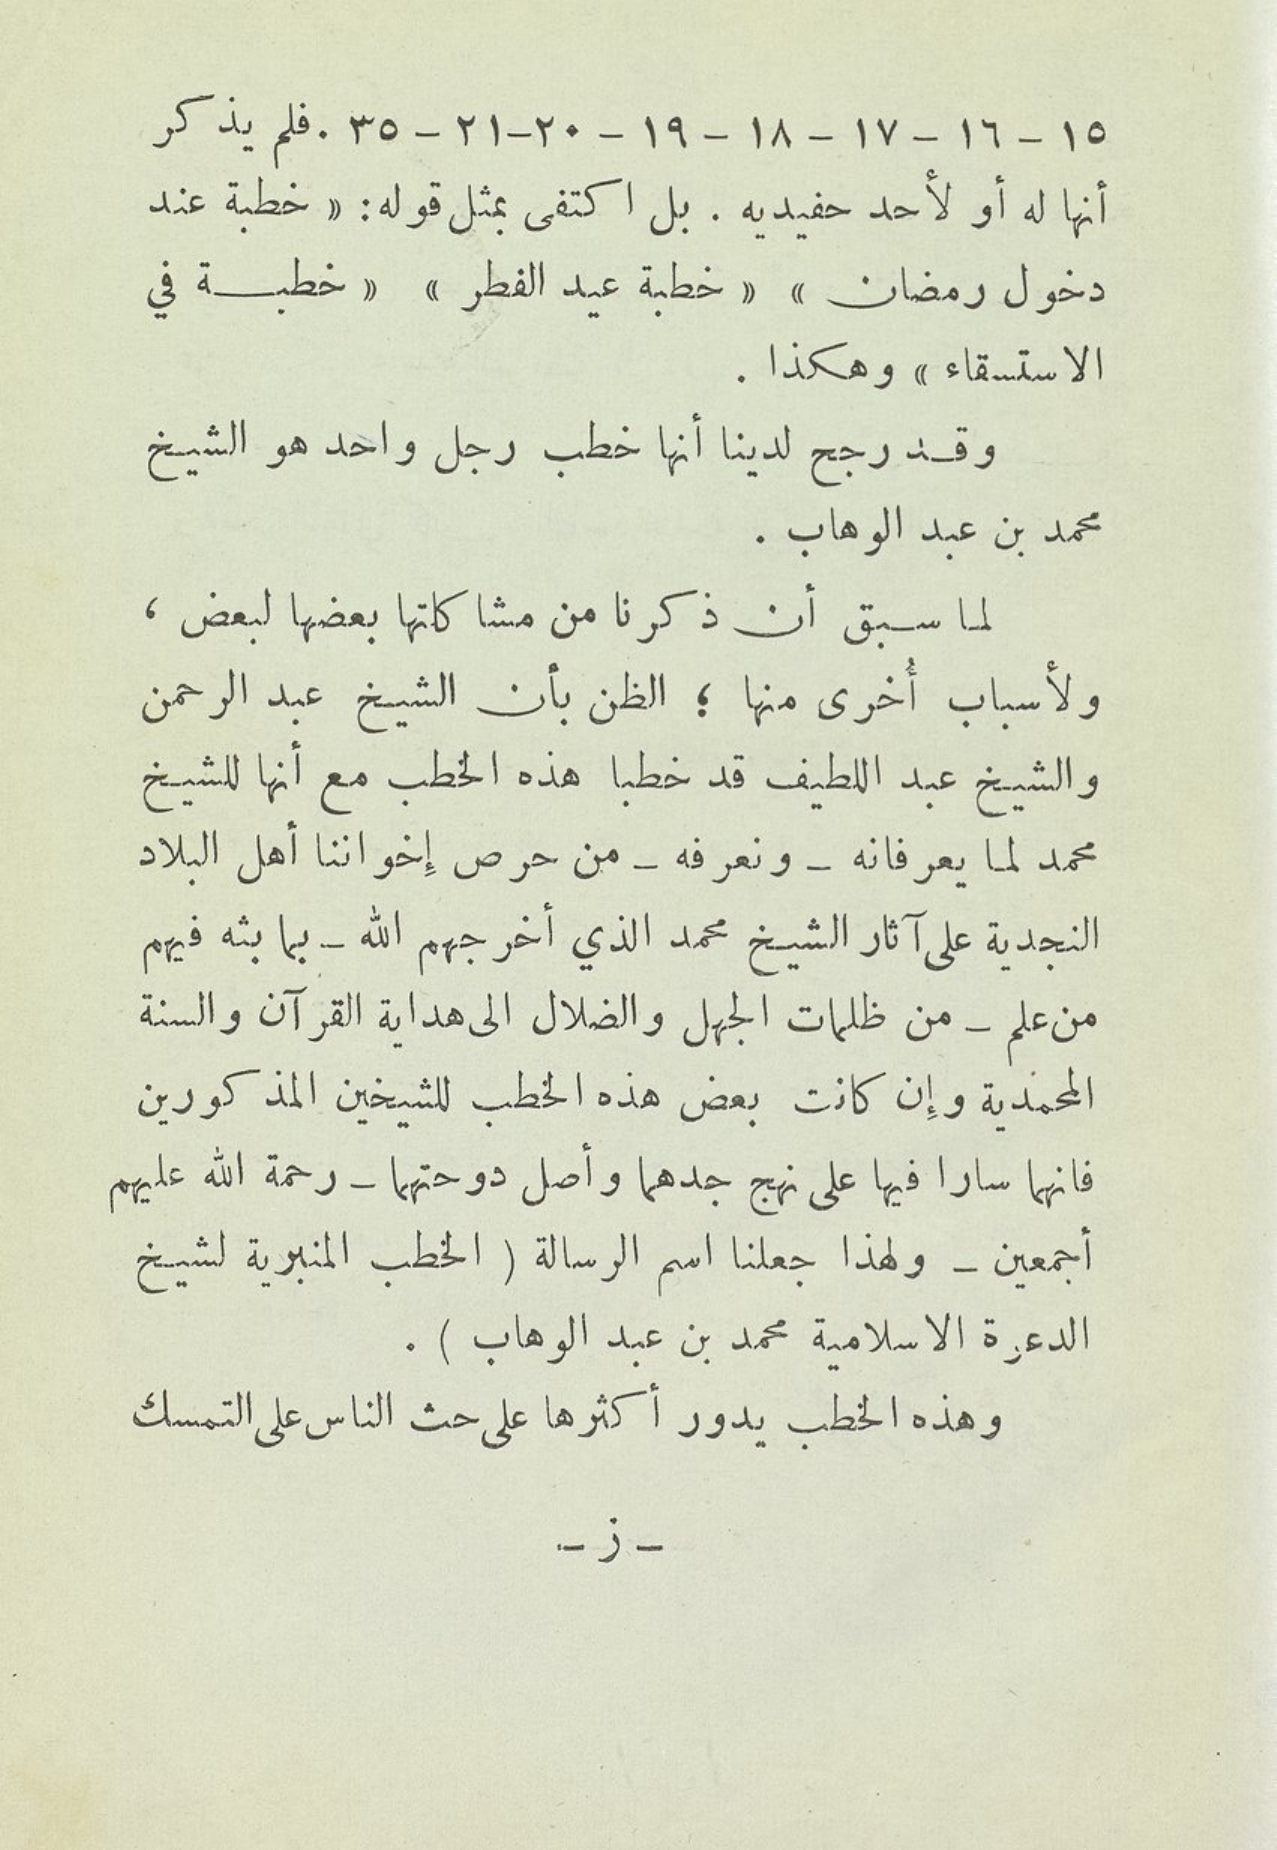 ١٥ – ١٦ – ١٧ – ١٨ – ١٩ – ٢٠–٢١ – ٣٥ . فلم يذكر
أنها له أو لأحد حفيديه . بل اكتفى بمثل قوله: « خطبة عند
دخول رمضان » « خطبة عيد الفطر » « خطبـــة في
الاستسقاء » وهكذا .
وقـد رجح لدينا أنها خطب رجل واحد هو الشيخ
محمد بن عبد الوهاب .
لما سبق أن ذكرنا من مشاكلتها بعضها لبعض ،
ولأسباب أُخرى منها ؛ الظن بأن الشيخ عبد الرحمن
والشيخ عبد اللطيف قد خطبا هذه الخطب مع أنها للشيخ
محمد لما يعرفانه – ونعرفه – من حرص إِخواننا أهل البلاد
النجدية على آثار الشيخ محمد الذي أخرجهم الله – بما بثه فيهم
من علم – من ظلمات الجهل والضلال الى هداية القرآن والسنة
المحمدية وإِن كانت بعض هذه الخطب للشيخين المذكورين
فانهما سارا فيها على نهج جدهما وأصل دوحتهما – رحمة الله عليهم
أجمعين – ولهذا جعلنا اسم الرسالة ( الخطب المنبرية لشيخ
الدعوة الاسلامية محمد بن عبد الوهاب ) .
وهذه الخطب يدور أكثرها على حث الناس على التمسك
– ز –